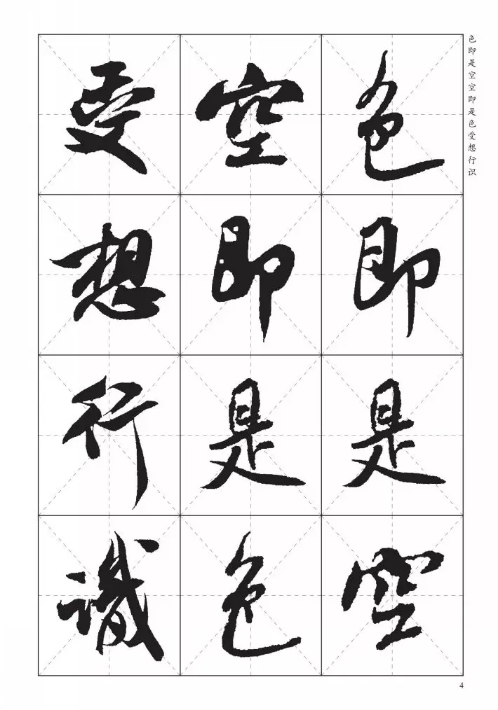 色即是空
空即是色
受想行識
色即是空空即是色受想行识
4